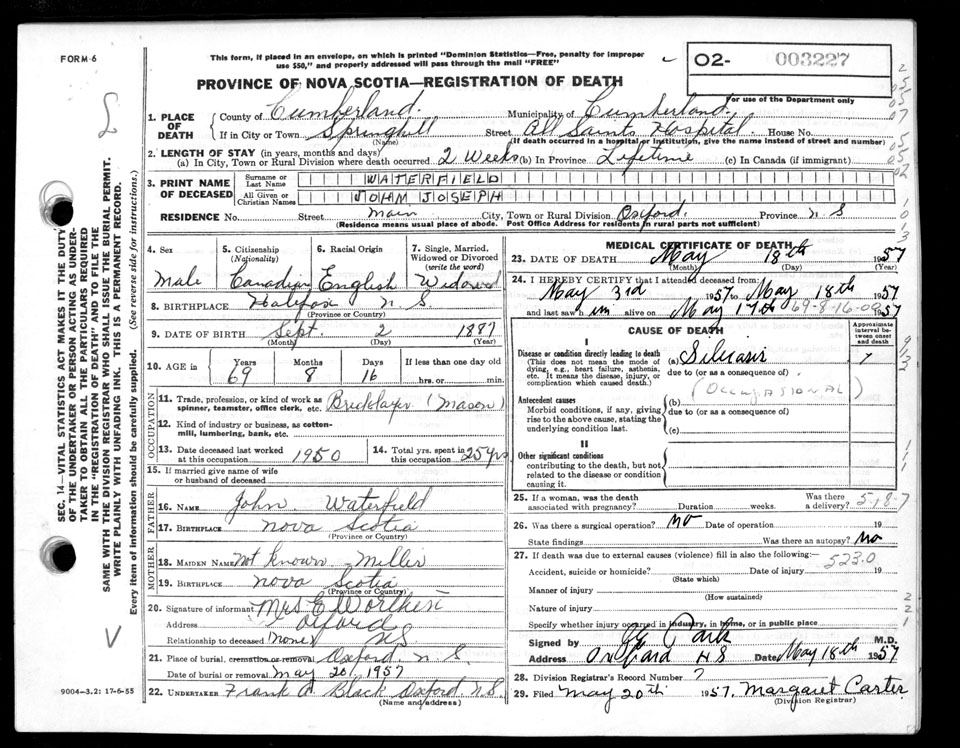 FORM-6
This form, if placed in an envelope, on which is printed "Dominion Statistics—Free, penalty for improper
use $50," and properly addressed will pass through the mail "FREE"
PROVINCE OF NOVA SCOTIA—REGISTRATION OF DEATH
O2- 003227
For use of the Department only
1. PLACE OF DEATH
County of Cumberland. Municipality of Cumberland.
If in City or Town Springhill Street All Saints Hospital. House No.
(Name) (If death occurred in a hospital or institution, give the name instead of street and number)
2. LENGTH OF STAY (in years, months and days)
(a) In City, Town or Rural Division where death occurred 2 Weeks (b) In Province Lifetime (c) In Canada (if immigrant)
3. PRINT NAME OF DECEASED
Surname or Last Name WATERFIELD
All Given or Christian Names JOHN JOSEPH
RESIDENCE No. Street Main City, Town or Rural Division Oxford. Province N S
(Residence means usual place of abode. Post Office Address for residents in rural parts not sufficient)
4. Sex 5. Citizenship (Nationality) 6. Racial Origin 7. Single, Married, Widowed or Divorced (write the word)
Male Canadian English Widowed
8. BIRTHPLACE Halifax N S
(Province or Country)
9. DATE OF BIRTH Sept. 2 1887
(Month) (Day) (Year)
10. AGE in Years Months Days If less than one day old
69 8 16 hrs. or min.
OCCUPATION
11. Trade, profession, or kind of work as spinner, teamster, office clerk, etc. Bricklayer (Mason)
12. Kind of industry or business, as cotton-mill, lumbering, bank, etc.
13. Date deceased last worked at this occupation 1950 14. Total yrs. spent in this occupation 25 yrs
15. If married give name of wife or husband of deceased
FATHER
16. NAME John Waterfield
17. BIRTHPLACE Nova Scotia
(Province or Country)
MOTHER
18. MAIDEN NAME Not Known Miller
19. BIRTHPLACE Nova Scotia
(Province or Country)
20. Signature of informant Mrs E
Address Oxford
Relationship to deceased None NS
21. Place of burial, cremation or removal Oxford. N. S.
Date of burial or removal May 20, 1957
22. UNDERTAKER Frank A Black Oxford. N.S.
(Name and address)
MEDICAL CERTIFICATE OF DEATH
23. DATE OF DEATH May 18th 1957
(Month) (Day) (Year)
24. I HEREBY CERTIFY that I attended deceased from:
May 3rd 1957 to May 18th 1957
and last saw him alive on May 17th 1957
69-8-16-09
CAUSE OF DEATH
Approximate interval between onset and death
I
Disease or condition directly leading to death
(This does not mean the mode of dying, e.g., heart failure, asthenia, etc. It means the disease, injury, or complication which caused death.)
(a) Silicosis ?
due to (or as a consequence of)
(OCCUPASIONAL)
Antecedent causes
Morbid conditions, if any, giving rise to the above cause, stating the underlying condition last.
(b)
due to (or as a consequence of)
(c)
II
Other significant conditions
contributing to the death, but not related to the disease or condition causing it.
25. If a woman, was the death associated with pregnancy? Duration weeks. Was there a delivery?
5-18-7
26. Was there a surgical operation? No Date of operation 19
State findings Was there an autopsy? No
27. If death was due to external causes (violence) fill in also the following:—
523.0
Accident, suicide or homicide? Date of injury 19
(State which)
Manner of injury
(How sustained)
Nature of injury
Specify whether injury occurred in industry, in home, or in public place
Signed by Park M.D.
Address Oxford NS Date May 18th 1957
28. Division Registrar's Record Number 7
29. Filed May 20th 1957. Margaret Carter
(Division Registrar)
SEC. 14—VITAL STATISTICS ACT MAKES IT THE DUTY
OF THE UNDERTAKER OR PERSON ACTING AS UNDER-
TAKER TO OBTAIN ALL THE PARTICULARS REQUIRED
IN THE "REGISTRATION OF DEATH" AND TO FILE THE
SAME WITH THE DIVISION REGISTRAR WHO SHALL ISSUE THE BURIAL PERMIT.
WRITE PLAINLY WITH UNFADING INK. THIS IS A PERMANENT RECORD.
Every item of information should be carefully supplied. (See reverse side for instructions.)
9004-3.2: 17-6-55